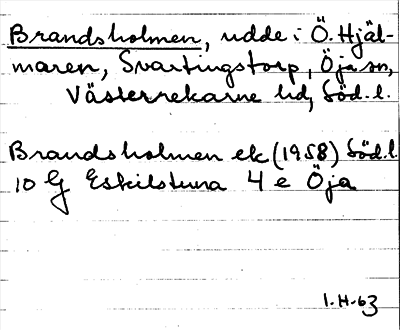 Brandsholmen, udde i Ö. Hjäl-
maren, Svartingstorp, Öja sn,
Västerrekarne hd, Söd. l.
Brandsholmen ek (1958) Söd. l.
10 G Eskilstuna 4 e Öja
1.H.63